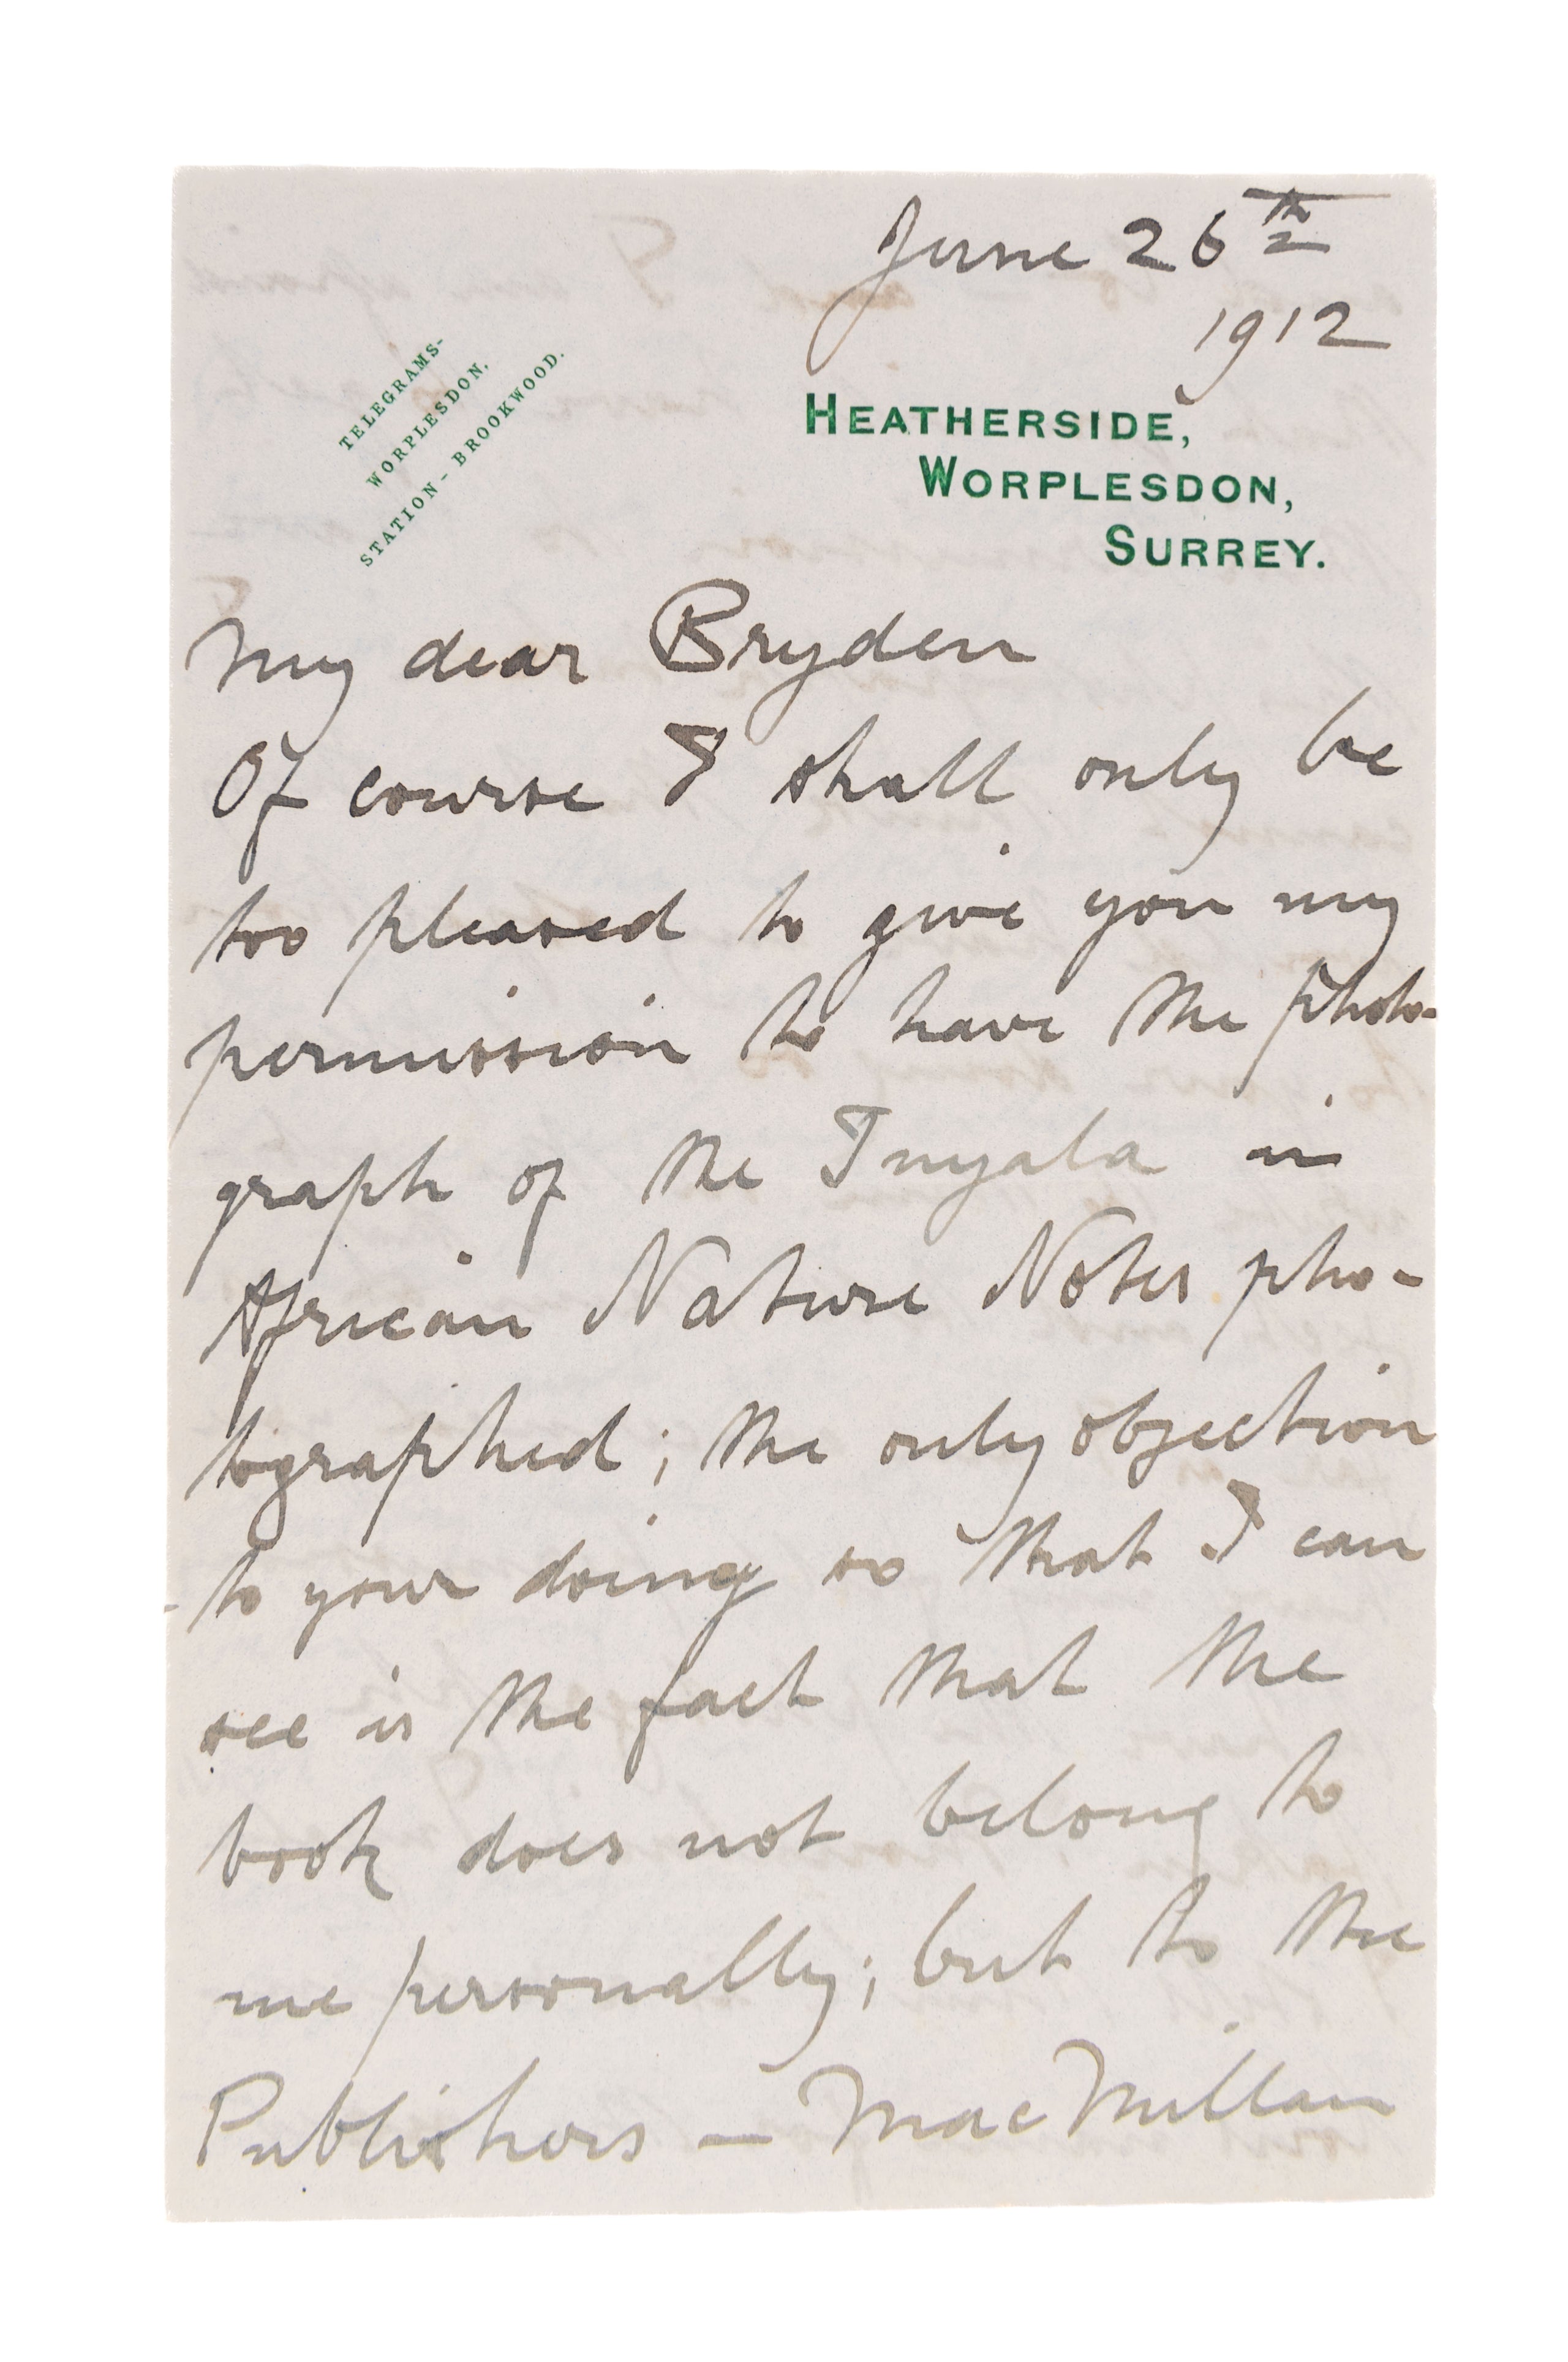 June 26th
1912
TELEGRAMS-
WORPLESDON.
STATION - BROOKWOOD.
HEATHERSIDE,
WORPLESDON,
SURREY.
My dear Bryden
Of course I shall only be
too pleased to give you my
permission to have the photo-
graph of the Inyala in
African Nature Notes pho-
tographed; the only objection
to your doing so that I can
see is the fact that the
book does not belong to
me personally; but to the
Publishers — MacMillan